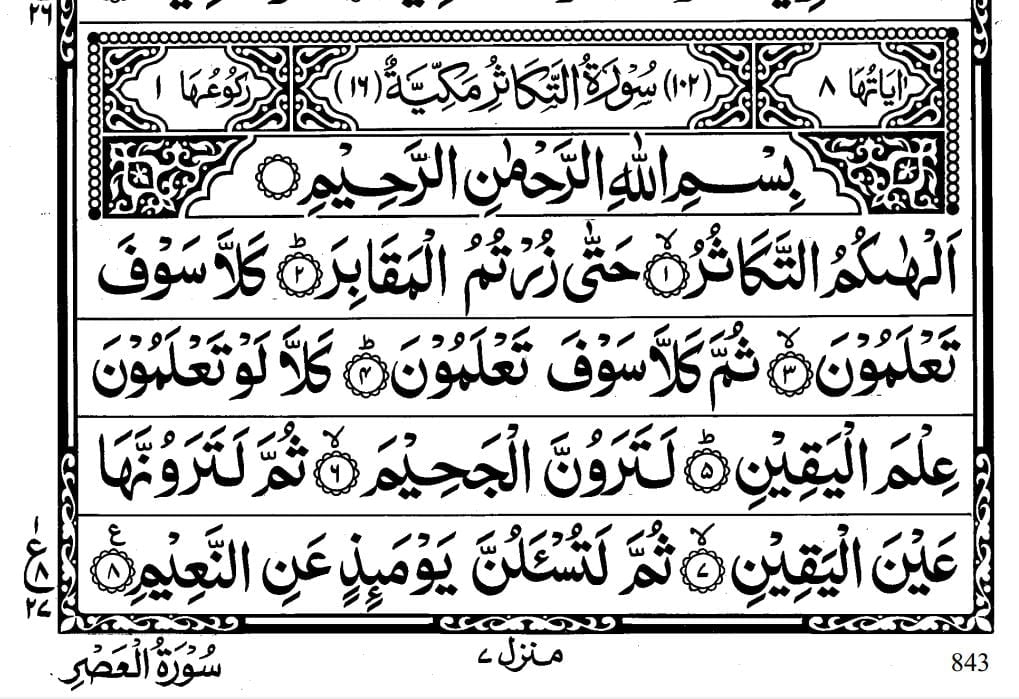 ٢٦
اٰيَاتُهَا ٨ (١٠٢) سُوْرَةُ التَّكَاثُرِ مَكِّيَّةٌ (١٦) رُكُوْعُهَا ١
بِسْمِ اللّٰهِ الرَّحْمٰنِ الرَّحِيْمِ
اَلْهٰىكُمُ التَّكَاثُرُ ۙ﴿١﴾ حَتّٰى زُرْتُمُ الْمَقَابِرَ ؕ﴿٢﴾ كَلَّا سَوْفَ
تَعْلَمُوْنَ ۙ﴿٣﴾ ثُمَّ كَلَّا سَوْفَ تَعْلَمُوْنَ ؕ﴿٤﴾ كَلَّا لَوْ تَعْلَمُوْنَ
عِلْمَ الْيَقِيْنِ ؕ﴿٥﴾ لَتَرَوُنَّ الْجَحِيْمَ ۙ﴿٦﴾ ثُمَّ لَتَرَوُنَّهَا
عَيْنَ الْيَقِيْنِ ۙ﴿٧﴾ ثُمَّ لَتُسْـَٔلُنَّ يَوْمَئِذٍ عَنِ النَّعِيْمِ ﴿٨﴾ ع
١
ع
٨
٢٧
سُوْرَةُ الْعَصْرِ منزل ٧ 843